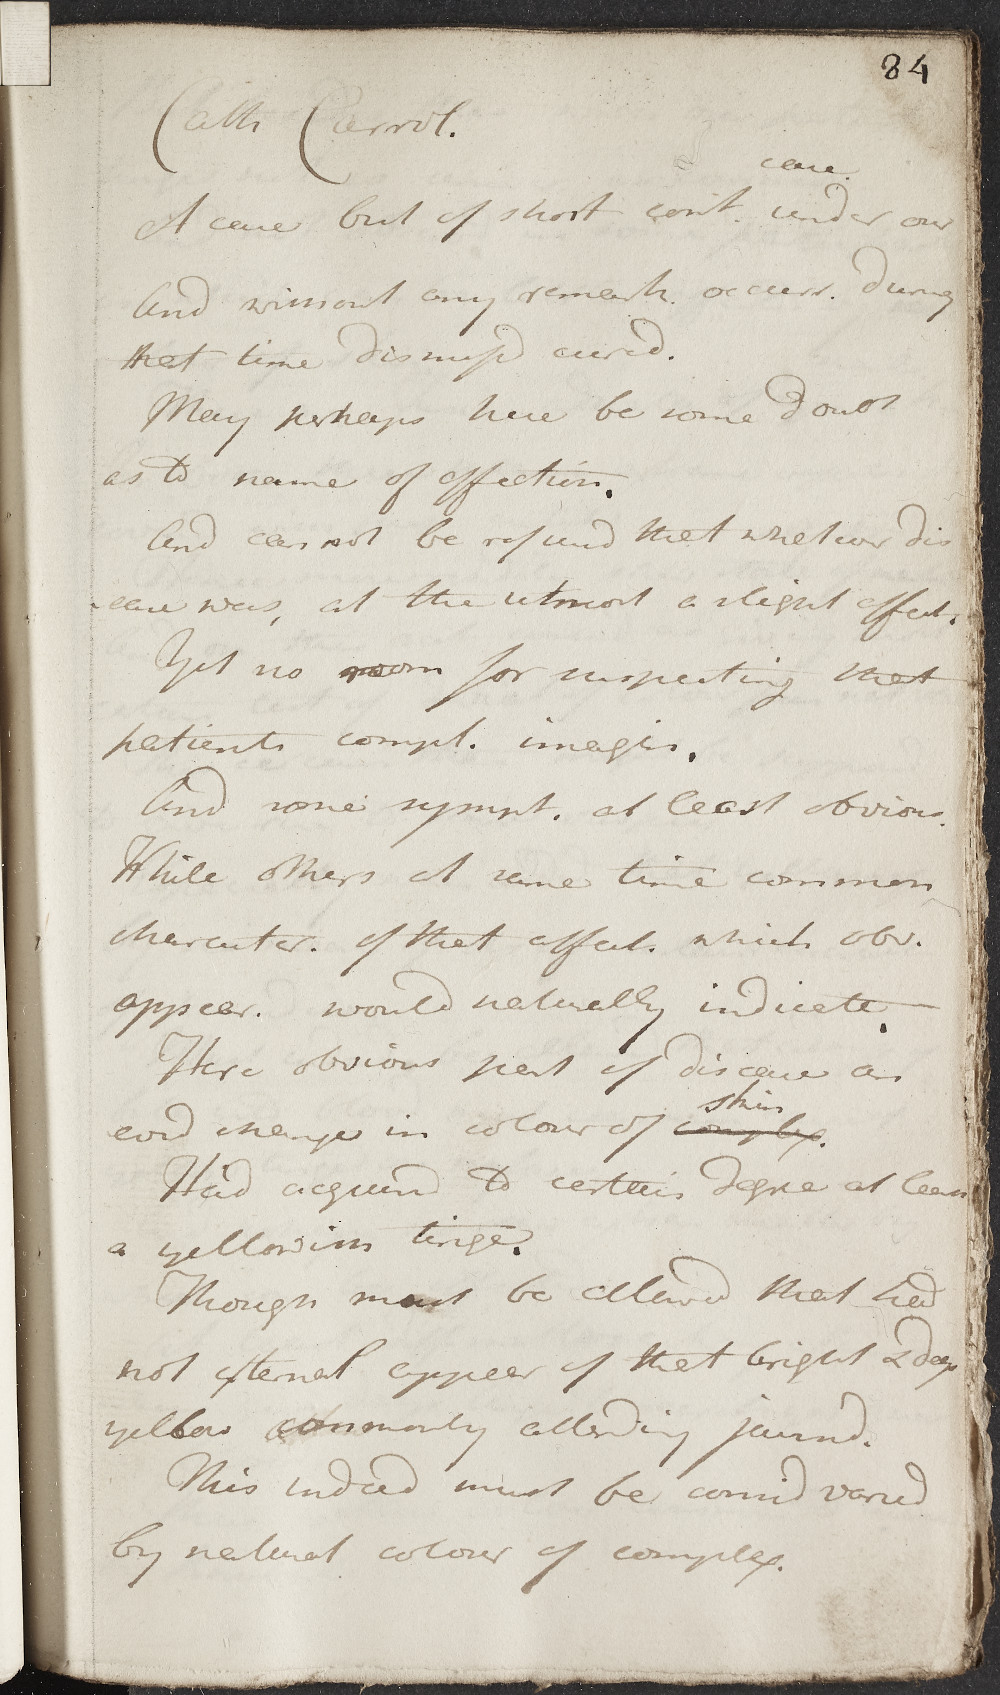 84
Cath Carrol.
care.
A case but of short cont. under our
And without any remark. occurr. during
that time dismissd cured.
May perhaps here be some doubt
as to name of affection.
And can not be refused that whatever dis
ease was, at the utmost a slight affect.
Yet no room for suspecting that
patients compl. imagin.
And some sympt. at least obvious.
While others at same time common
character. of that affect. which obv.
appear. would naturally indicate.
Here obvious part of disease an
evid change in colour of complex.
skin
Had acquired to certain degree at least
a yellowish tinge.
Though must be allowed that had
not external appear of that bright & deep
yellow commonly attending jaund.
This indeed must be consid varied
by natural colour of complex.